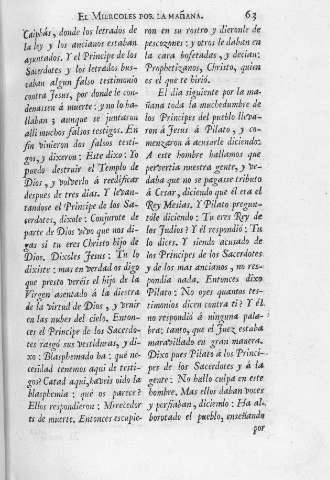 EL MIERCOLES POR LA MAÑANA. 63
Caiphàs, donde los letrados de
la ley y los ancianos estaban
ayuntados. Y el Principe de los
Sacerdotes y los letrados bus-
caban algun falso testimonio
contra Jesus, por donde le con-
denassen à muerte: y no lo ha-
llaban; aunque se juntaron
alli muchos falsos testigos. En
fin vinieron dos falsos testi-
gos, y dixeron: Este dixo: Yo
puedo destruir el Templo de
Dios, y volverlo à reedificar
despues de tres dias. Y levan-
tandose el Principe de los Sa-
cerdotes, dixole: Conjurote de
parte de Dios vivo que nos di-
gas si tu eres Christo hijo de
Dios. Dixoles Jesus: Tu lo
dixiste: mas en verdad os digo
que presto vereis el hijo de la
Virgen asentado à la diestra
de la virtud de Dios, y venir
en las nubes del cielo. Enton-
ces el Principe de los Sacerdo-
tes rasgó sus vestiduras, y di-
xo: Blasphemado ha: qué ne-
cesidad tenemos aqui de testi-
gos? Catad aqui, haveis oido la
blasphemia: qué os parece?
Ellos respondieron: Merecedor
es de muerte. Entonces escupie-
ron en su rostro y dieronle de
pescozones: y otros le daban en
la cara bofetadas, y decian:
Prophetizanos, Christo, quien
es el que te hirió.
El dia siguiente por la ma-
ñana toda la muchedumbre de
los Principes del pueblo lleva-
ron à Jesus à Pilato, y co-
menzaron à acusarle diciendo:
A este hombre hallamos que
pervertia nuestra gente, y ve-
daba que no se pagasse tributo
à Cesar, diciendo que él era el
Rey Mesias. Y Pilato pregun-
tóle diciendo: Tu eres Rey de
los Judios? Y él respondió: Tu
lo dices. Y siendo acusado de
los Principes de los Sacerdotes
y de los mas ancianos, no res-
pondia nada. Entonces dixo
Pilato: No oyes quantos tes-
timonios dicen contra ti? Y él
no respondió à ninguna pala-
bra: tanto, que el Juez estaba
maravillado en gran manera.
Dixo pues Pilato à los Princi-
pes de los Sacerdotes y à la
gente: No hallo culpa en este
hombre. Mas ellos daban voces
y porfiaban, diciendo: Ha al-
borotado el pueblo, enseñando
por